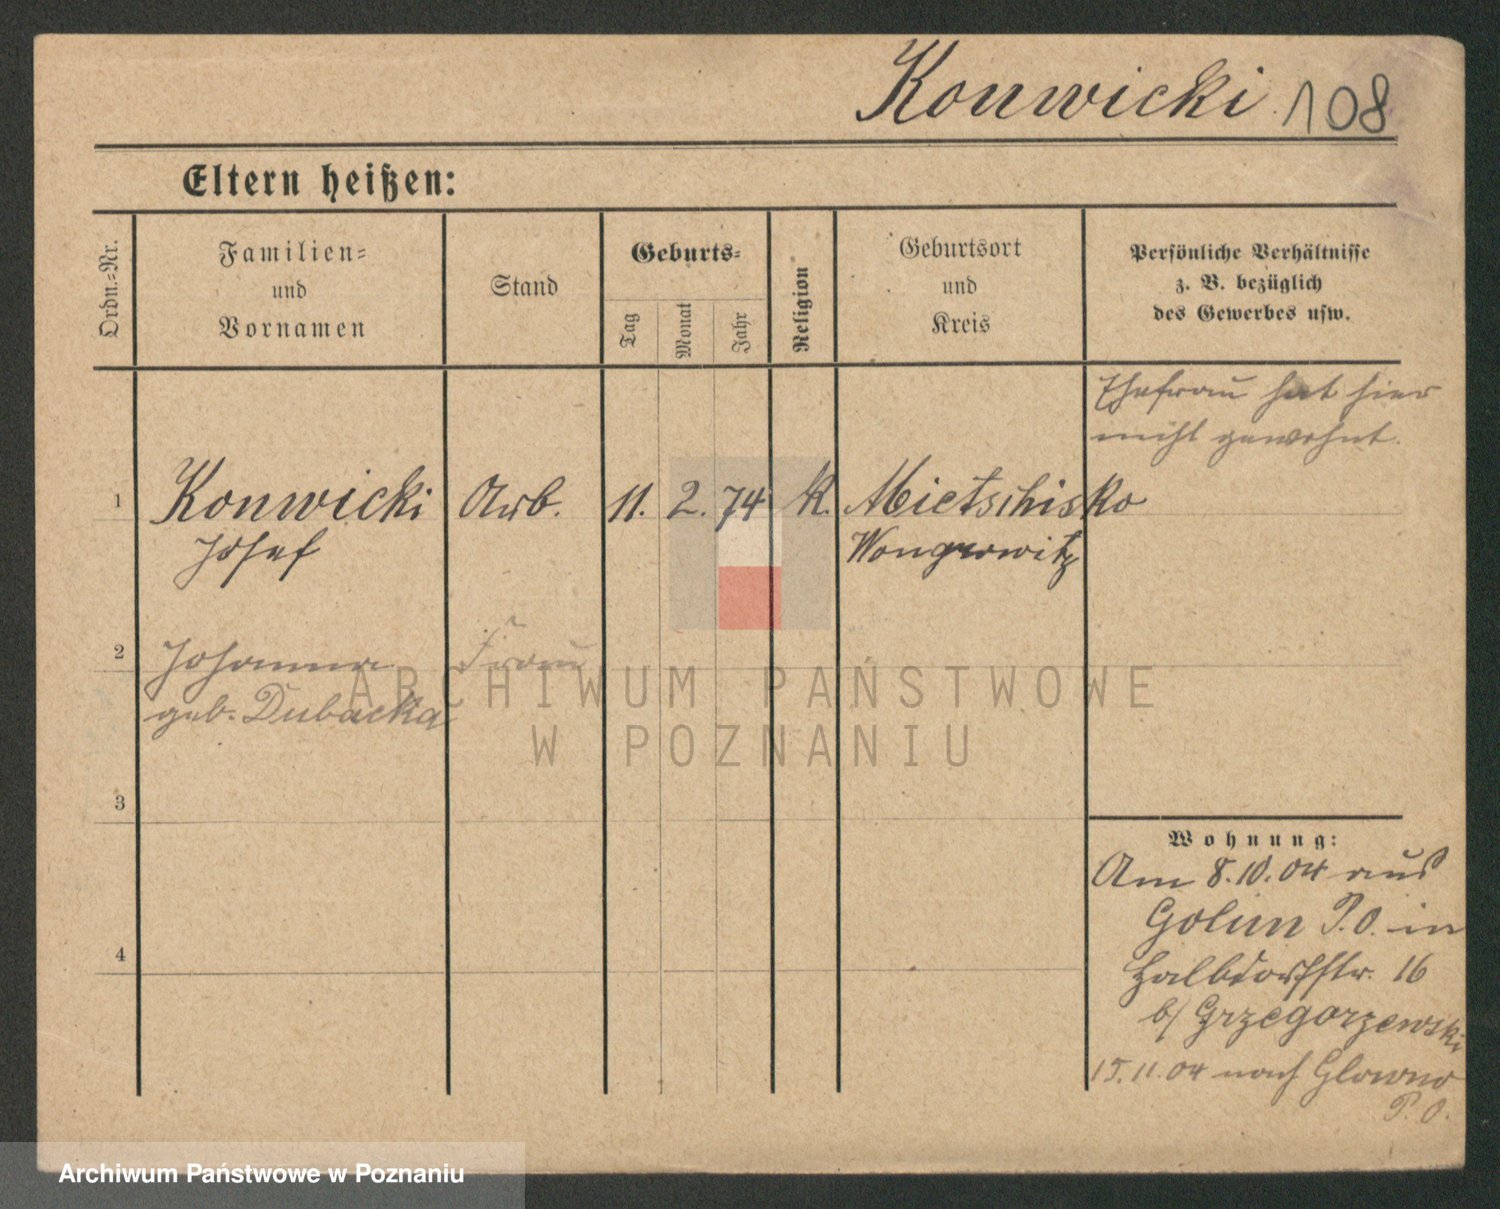 Konwicki 108
Eltern heißen:
Ordn.-Nr.
Familien-
und
Vornamen
Stand
Geburts-
Tag
Monat
Jahr
Religion
Geburtsort
und
Kreis
Persönliche Verhältnisse
z. B. bezüglich
des Gewerbes usw.
Ehefrau hat hier
nicht gewohnt.
1 Konwicki Arb. 11. 2. 74 K. Mietschisko
Josef Wongrowitz
2 Johanna Frau
geb. Dubacka
ARCHIWUM PAŃSTWOWE
W POZNANIU
3
Wohnung:
Am 8.10.04 aus
Golun P.O. in
4
Halbdorfstr. 16
b/ Grzegorzewski
15.11.04 nach Glowno
P. O.
Archiwum Państwowe w Poznaniu